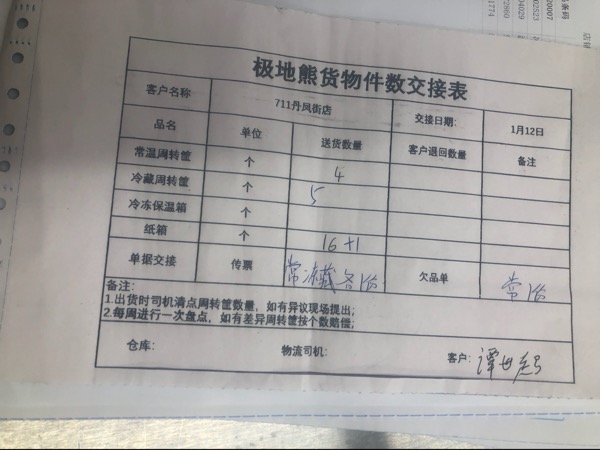 极地熊货物件数交接表
客户名称 711丹凤街店 交接日期: 1月12日
品名 单位 送货数量 客户退回数量 备注
常温周转筐 个 4
冷藏周转筐 个 5
冷冻保温箱 个
纸箱 个 16+1
单据交接 传票 常冻藏各1份 欠品单 常1份
备注:
1.出货时司机清点周转筐数量，如有异议现场提出;
2.每周进行一次盘点，如有差异周转筐按个数赔偿;
仓库: 物流司机: 客户:
条码
20007
02523
04029
22860
1774